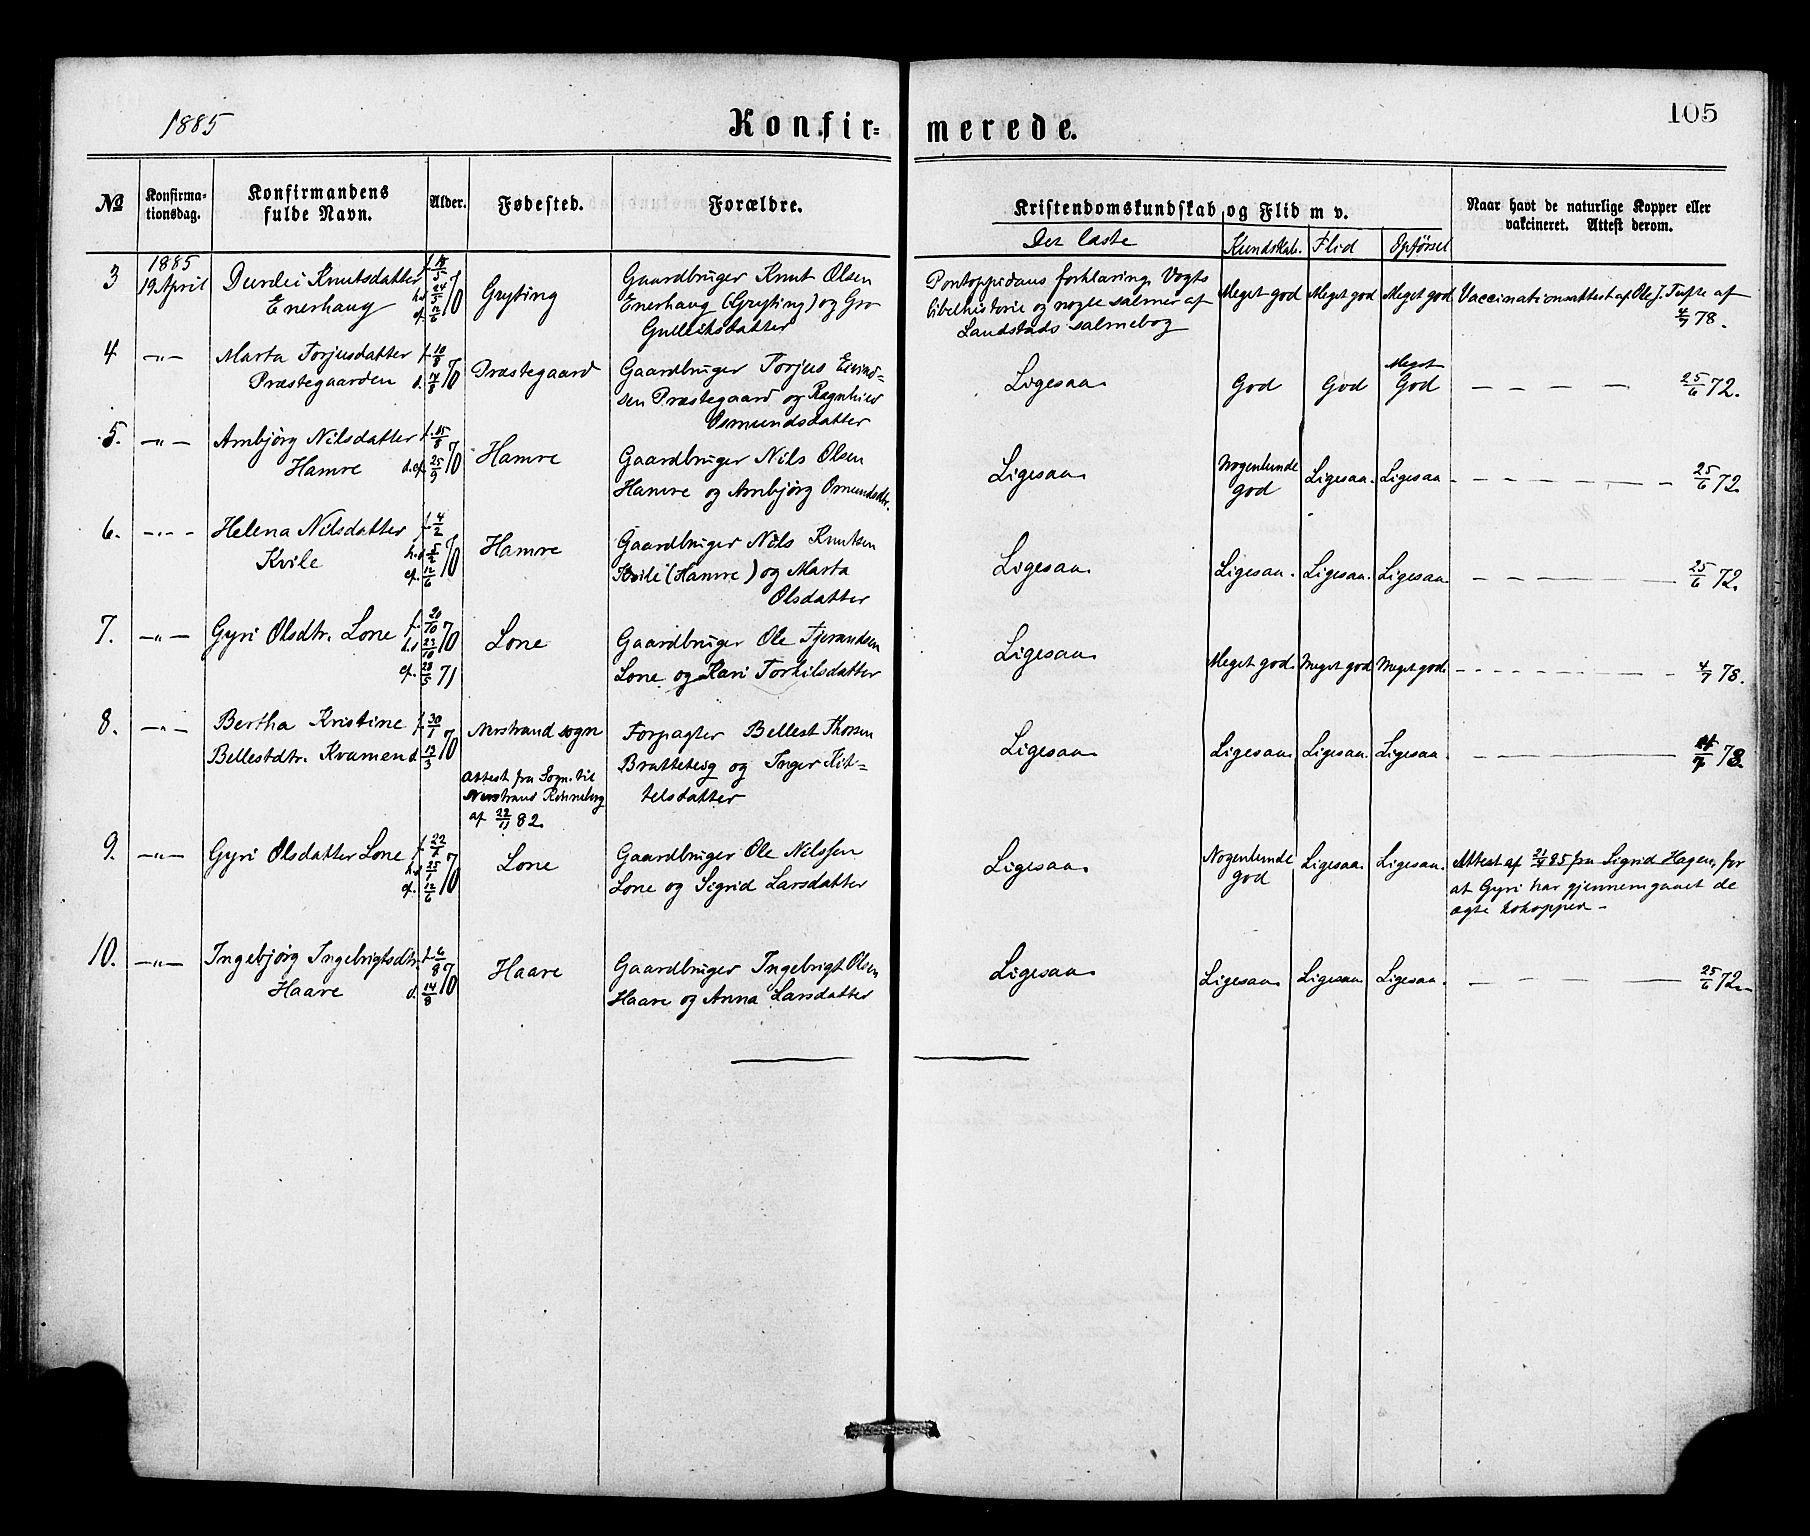 1885
Konfir= merede.
105
No
Konfirma-
tionsdag.
Konfirmandens
fulde Navn.
Alder.
Fødested.
Forældre.
Kristendomskundskab og Flid m v.
Naar havt de naturlige Kopper eller
vakcineret. Attest derom.
Der læste
Kundskab.
Flid
Opförsel
3
1885
19 April
Knutsdatter
Enerhaug
f. 18/5
h.d 24/5 70
ef. 12/6
Gryting
Gaardbruger Knut Olsen
Enerhaug (Gryting) og Gro
Gulleiksdatter
Pontoppidans forklaring, Vogts
bibelhistorie og nogle salmer af
Landstads salmebog
Meget god
Meget god
Meget god
Vaccinationsattest af Ole J. Tufte af
4/7 78.
4
—"—
Marta Torjusdatter
Præstegaarden
f. 10/8
d. 14/8 70
Præstegaard
Gaardbruger Torjus Eivind=
sen Præstegaard og Ragnhild
Osmundsdatter
Ligesaa
God
God
Meget
God
— — — —
25/6 72.
5.
—"—
Ambjörg Nilsdatter
Hamre
f. 15/8
d. ef. 25/9 70
Hamre
Gaardbruger Nils Olsen
Hamre og Ambjörg Omundsdtr.
Ligesaa
Nogenlunde
god
Ligesaa.
Ligesaa
— — — —
25/6 72
6.
—"—
Helena Nilsdatter
Kvile
f. 4/2
h.d 5/2 70
ef. 12/6
Hamre
Gaardbruger Nils Knutsen
Kvile (Hamre) og Marta
Olsdatter
Ligesaa
Ligesaa.
Ligesaa.
Ligesaa
— — — —
25/6 72.
7.
—"—
Gyri Olsdtr. Lone
f. 20/10
h.d 23/10 70
ef. 28/5 71
Lone
Gaardbruger Ole Tjerandsen
Lone og Kari Torkilsdatter
Ligesaa
Meget god
Meget god
Meget god
— — — —
4/7 78.
8.
—"—
Bertha Kristine
Bellestdtr. Kvamen
f. 30/1
d. 13/3 70
Nerstrand sogn
Attest fra Sogn. til
Nerstrand Rönneberg
af 22/11 82.
Forpagter Bellest Thorsen
Bratteteig og Inger Kit=
telsdatter
Ligesaa
Ligesaa
Ligesaa.
Ligesaa.
— — — —
9.
—"—
Gyri Olsdatter Lone
h.d 25/1 70
ef. 12/6
Lone
Gaardbruger Ole Nilssen
Lone og Sigrid Larsdatter
Ligesaa
Nogenlunde
god
Ligesaa.
Ligesaa.
Attest af 21/4 85 fra Sigrid Hagen, for
at Gyri har gjennemgaaet de
ægte kokopper —
10.
—"—
Ingebjörg Ingebrigtsdtr.
Haare
f. 6/8
d. 14/8 70
Haare
Gaardbruger Ingebrigt Olsen
Haare og Anna Larsdatter
Ligesaa
Ligesaa
Ligesaa
Ligesaa.
— — — —
25/6 72.